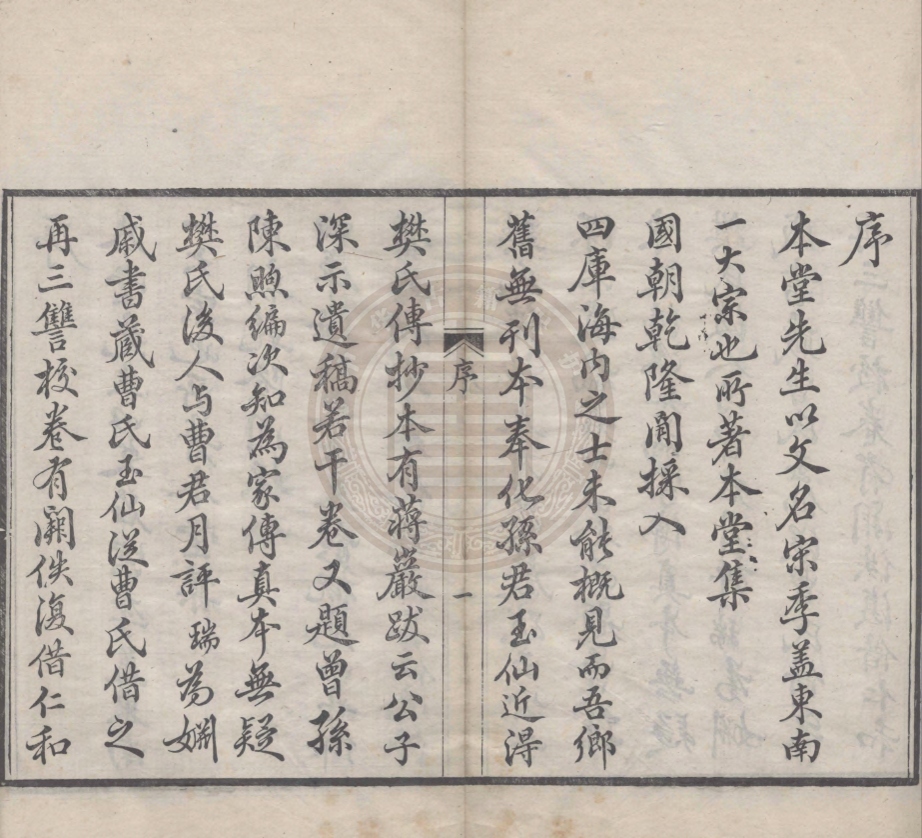 序
本堂先生以文名宋季盖東南
一大宗也所著本堂集
國朝乾隆間採入
四庫海内之士未能概見而吾鄉
舊無刊本奉化孫君玉仙近得
序
一
樊氏傳抄本有蔣巖跋云公子
深示遺稿若干卷又題曾孫
陳煦編次知為家傳真本無疑
樊氏後人与曹君月評瑞為姻
戚書藏曹氏玉仙從曹氏借之
再三讐校卷有闕佚復借仁和